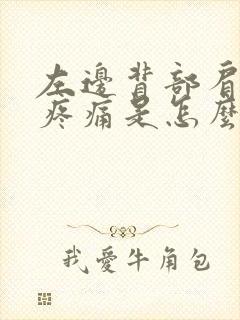 左邊背部肩
疼痛是怎麼
我愛牛角包